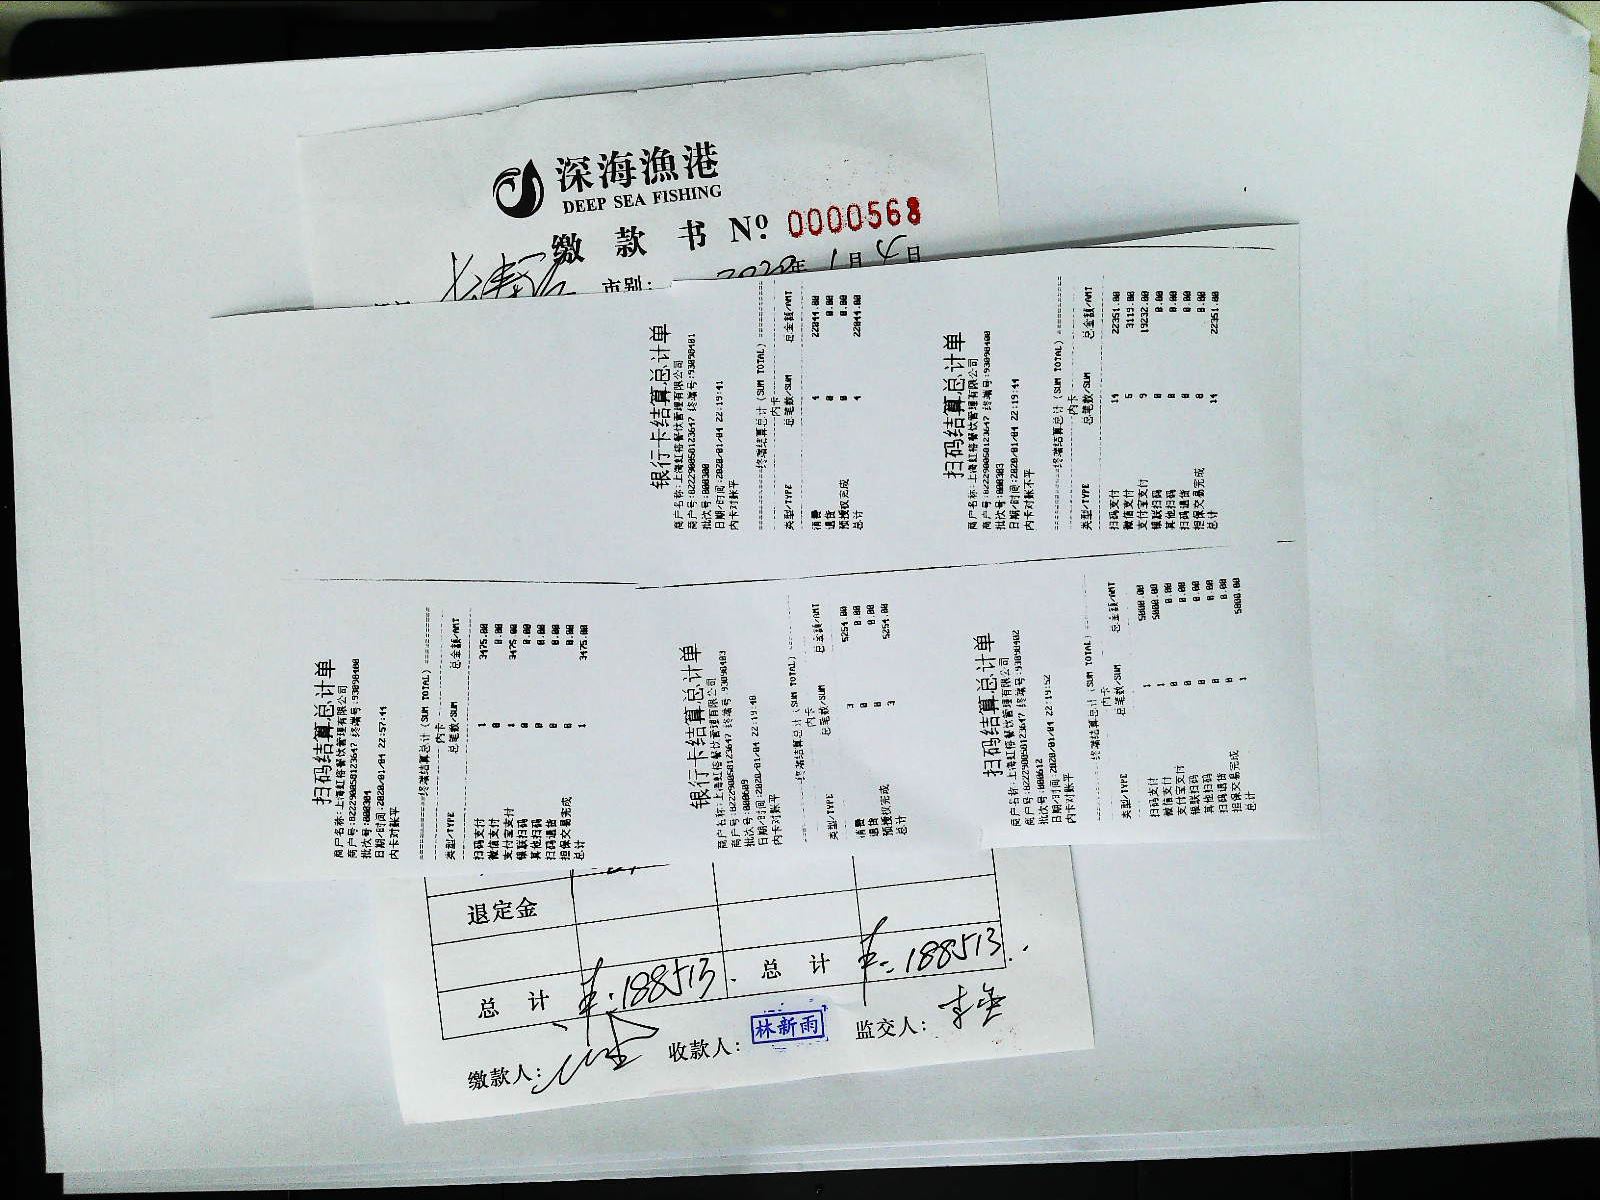 深海漁港
DEEP SEA FISHING
缴款书 Nº 0000568
市别: 2020年1月4日
银行卡结算总计单
商户名称:上海虹悟餐饮管理有限公司
商户号:822290058123647 终端号:93090401
批次号:000300
日期/时间:2020/01/04 22:19:41
内卡对账平
终端结算总计(SUM TOTAL)
内卡
类型/TYPE 总笔数/SUM 总金额/AMT
消费 4 22044.00
退货 0 0.00
预授权完成 0 0.00
总计 4 22044.00
扫码结算总计单
商户名称:上海虹悟餐饮管理有限公司
商户号:822290058123647 终端号:93090400
批次号:000303
日期/时间:2020/01/04 22:19:44
内卡对账不平
终端结算总计(SUM TOTAL)
内卡
类型/TYPE 总笔数/SUM 总金额/AMT
扫码支付 14 22351.00
微信支付 5 3119.00
支付宝支付 9 19232.00
银联扫码 0 0.00
其他扫码 0 0.00
扫码退货 0 0.00
担保交易完成 0 0.00
总计 14 22351.00
扫码结算总计单
商户名称:上海虹悟餐饮管理有限公司
商户号:822290058123647 终端号:93090400
批次号:000304
日期/时间:2020/01/04 22:57:44
内卡对账平
终端结算总计(SUM TOTAL)
内卡
类型/TYPE 总笔数/SUM 总金额/AMT
扫码支付 1 3475.00
微信支付 0 0.00
支付宝支付 1 3475.00
银联扫码 0 0.00
其他扫码 0 0.00
扫码退货 0 0.00
担保交易完成 0 0.00
总计 1 3475.00
银行卡结算总计单
商户名称:上海虹悟餐饮管理有限公司
商户号:822290058123647 终端号:93090403
批次号:000609
日期/时间:2020/01/04 22:19:48
内卡对账平
终端结算总计(SUM TOTAL)
内卡
类型/TYPE 总笔数/SUM 总金额/AMT
消费 3 5254.00
退货 0 0.00
预授权完成 0 0.00
总计 3 5254.00
扫码结算总计单
商户名称:上海虹悟餐饮管理有限公司
商户号:822290058123647 终端号:93090402
批次号:000612
日期/时间:2020/01/04 22:19:52
内卡对账平
终端结算总计(SUM TOTAL)
内卡
类型/TYPE 总笔数/SUM 总金额/AMT
扫码支付 1 5000.00
微信支付 1 5000.00
支付宝支付 0 0.00
银联扫码 0 0.00
其他扫码 0 0.00
扫码退货 0 0.00
担保交易完成 0 0.00
总计 1 5000.00
退定金
总计 ¥188513. 总计 ¥188513.
缴款人: 收款人: 林新雨 监交人: